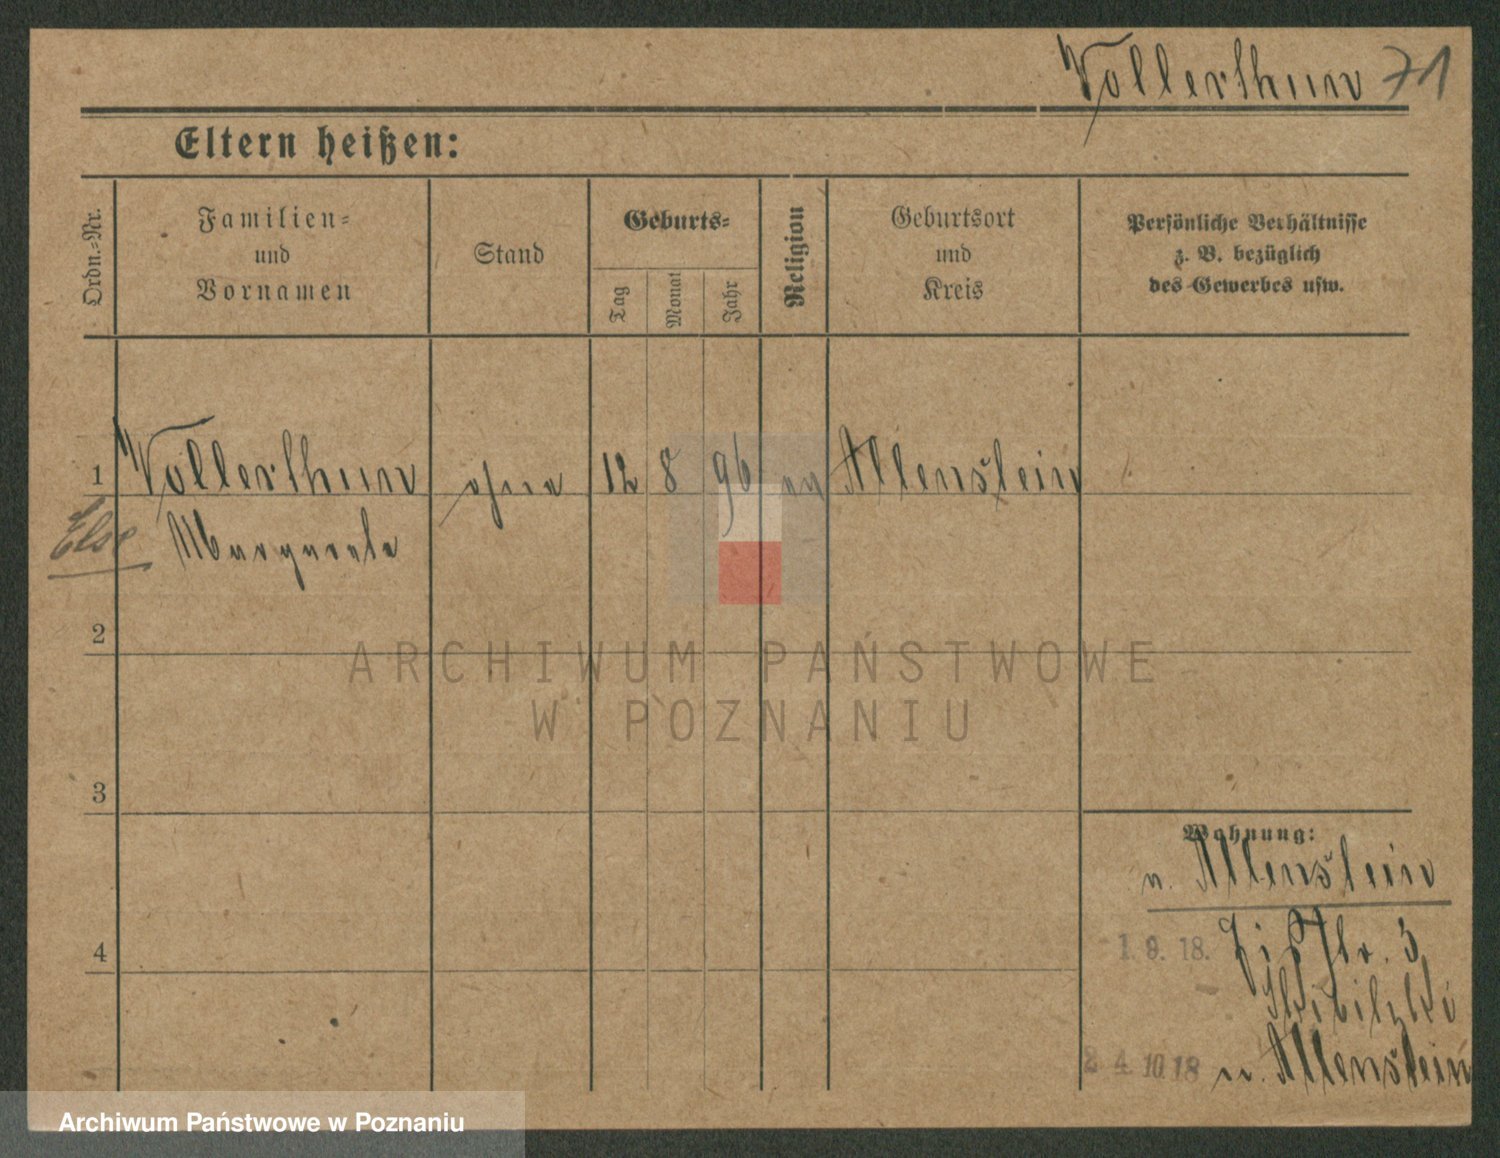 Vollerthun 71
Eltern heißen:
Ordn.=Nr.
Familien=
und
Vornamen
Stand
Geburts=
Tag
Monat
Jahr
Religion
Geburtsort
und
Kreis
Persönliche Verhältnisse
z. B. bezüglich
des Gewerbes usw.
1 Vollerthun ohne 12 8 96 ev Allenstein
Else Margarete
2
ARCHIWUM PAŃSTWOWE
W POZNANIU
3
Wohnung:
n. Allenstein
4
1. 9. 18. Str. 3
24.10.18 n. Allenstein
Archiwum Państwowe w Poznaniu